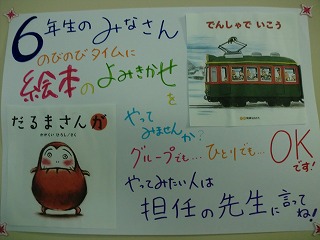 6年生のみなさん
のびのびタイムに
絵本のよみきかせを
やって
みませんか?
グループでも…ひとりでも…OKです!
やってみたい人は
担任の先生に言ってね!
でんしゃで いこう
だるまさんが
かがくい ひろし/さく